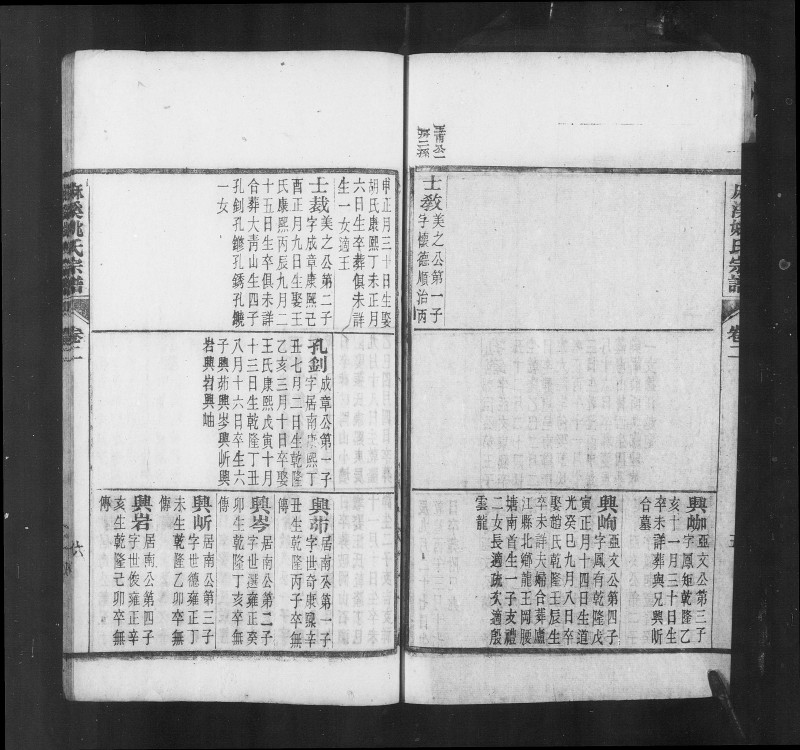 麻溪姚氏宗譜
卷二
五
士敎
美之公第一子
字懷德順治丙
興㟂
亞文公第三子
字鳳矩乾隆乙
亥十一月三十日生
卒未詳葬與兄興㟂
合墓
亞文公第四子
字鳳有乾隆戊
寅正月十四日生道
光癸巳九月八日卒
娶趙氏乾隆壬辰生
卒未詳夫婦合葬廬
江縣北鄉龍王岡腰
塘南首生一子支禮
二女長適疏次適殷
雲龍
申正月三十日生娶
胡氏康熙丁未正月
六日生卒葬俱未詳
生一女適王
士裁
美之公第二子
字成章康熙己
酉正月九日生娶王
氏康熙丙辰九月二
十五日生卒俱未詳
合葬大靑山生四子
孔釗孔鏐孔銹孔
一女
孔釗
成章公第一子
字居南康熙丁
丑七月二日生乾隆
乙亥三月十日卒娶
王氏康熙戊寅十月
十三日生乾隆丁丑
八月十六日卒生六
子興茀興岑興㟂興
岩興岩興岫
興茀
居南公第一子
字世奇康熙辛
丑生乾隆丙子卒無
傳
興岑
居南公第二子
字世選雍正癸
卯生乾隆丁亥卒無
傳
興㟂
居南公第三子
字世德雍正丁
未生乾隆乙卯卒無
傳
興岩
居南公第四子
字世俊雍正辛
亥生乾隆己卯卒無
傳
麻溪姚氏宗譜
卷二
六